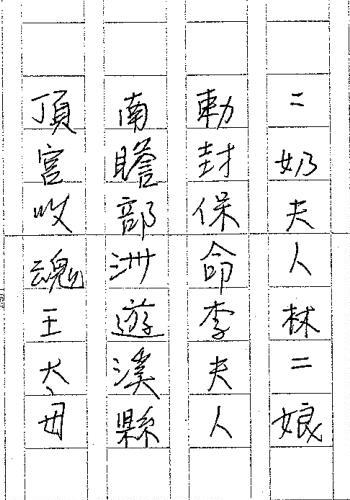 二奶夫人林二娘
勅封保命李夫人
南贍部洲遊溪縣
頂宮收魂王太母